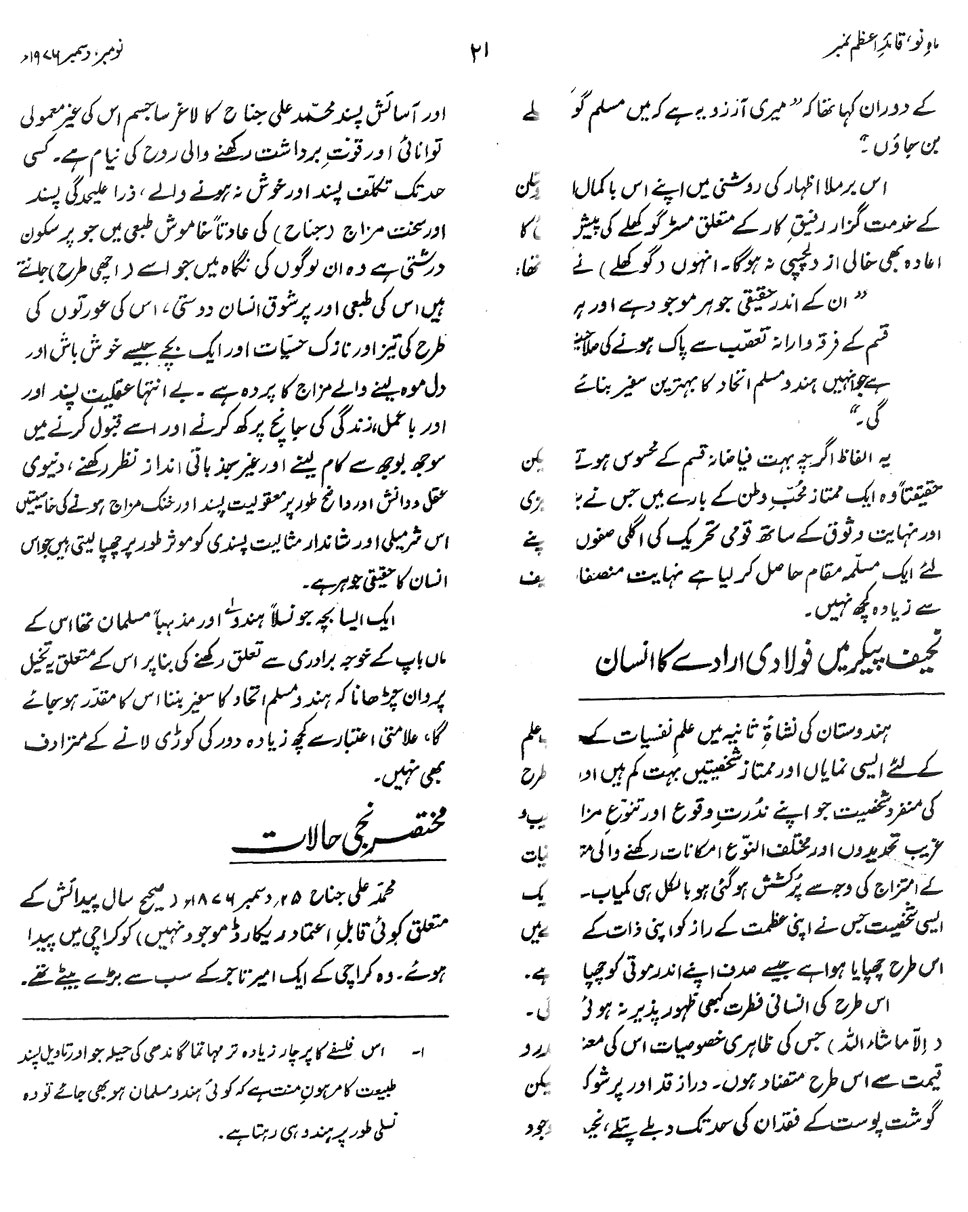 ماہِ نو، قائدِ اعظم نمبر
۲۱
نومبر، دسمبر ۱۹۷۶ء
کے دوران کہا تھا کہ ”میری آرزو یہ ہے کہ میں مسلم گو کھلے
بن جاؤں۔“
اس برملا اظہار کی روشنی میں اپنے اس باکمال لیکن
کے خدمت گزار رفیقِ کار کے متعلق مسٹر گوکھلے کی پیش کا
اعادہ بھی خالی از دلچسپی نہ ہوگا۔ انہوں (گوکھلے) نے تھا:
”ان کے اندر حقیقی جوہر موجود ہے اور ہر
قسم کے فرقہ وارانہ تعصب سے پاک ہونے کی صلاحیت
ہے جو انہیں ہندو مسلم اتحاد کا بہترین سفیر بنائے
گی۔“
یہ الفاظ اگرچہ بہت فیاضانہ قسم کے محسوس ہوتے لیکن
حقیقتاً وہ ایک ممتاز محبِّ وطن کے بارے میں جس نے بڑی
اور نہایت وثوق کے ساتھ قومی تحریک کی اگلی صفوں اپنے
لئے ایک مسلّمہ مقام حاصل کر لیا ہے نہایت منصفانہ
سے زیادہ کچھ نہیں۔
نحیف پیکر میں فولادی ارادے کا انسان
ہندوستان کی نشاۃِ ثانیہ میں علمِ نفسیات کے
کے لئے ایسی نمایاں اور ممتاز شخصیتیں بہت کم ہیں اور طرح
کی منفرد شخصیت جو اپنے ندرتِ وقوع اور تنوّعِ مزا
غریب تحدیدوں اور مختلف النوّع امکانات رکھنے والی
کے امتزاج کی وجہ سے پُرکشش ہوگئی ہو بالکل ہی کمیاب۔ یک
ایسی شخصیت جس نے اپنی عظمت کے راز کو اپنی ذات کے میں
اس طرح چھپایا ہوا ہے جیسے صدف اپنے اندر موتی کو چھپا ہے۔
اس طرح کی انسانی فطرت کبھی ظہور پذیر نہ ہوئی۔
(الّا ماشاءاللہ) جس کی ظاہری خصوصیات اس کی
قیمت سے اس طرح متضاد ہوں۔ دراز قد اور پرشوکت لیکن
گوشت پوست کے فقدان کی حد تک دبلے پتلے، وجود
اور آسائش پسند محمّد علی جناح کا لاغر سا جسم اس کی غیر معمولی
توانائی اور قوتِ برداشت رکھنے والی روح کی نیام ہے۔ کسی
حد تک تکلّف پسند اور خوش نہ ہونے والے، ذرا علیحدگی پسند
اور سخت مزاج (جناح) کی عادتاً خاموش طبعی میں جو پرسکون
درشتی ہے وہ ان لوگوں کی نگاہ میں جو اسے (اچھی طرح) جانتے
ہیں اس کی طبعی اور پرشوق انسان دوستی، اس کی عورتوں کی
طرح کی تیز اور نازک حسیّات اور ایک بچے جیسے خوش باش اور
دل موہ لینے والے مزاج کا پردہ ہے۔ بے انتہا عقلیت پسند اور
اور باعمل، زندگی کی جانچ پرکھ کرنے اور اسے قبول کرنے میں
سوجھ بوجھ سے کام لینے اور غیر جذباتی انداز نظر رکھنے، دنیوی
عقل و دانش اور واضح طور پر معقولیت پسند اور خنک مزاج ہونے کی خاصیتیں
اس شرمیلی اور شاندار مثالیت پسندی کو موثر طور پر چھپا لیتی ہیں جو اس
انسان کا حقیقی جوہر ہے۔
ایک ایسا بچہ جو نسلاً ہندو اور مذہباً مسلمان تھا اس کے
ماں باپ کے خوجہ برادری سے تعلق رکھنے کی بنا پر اس کے متعلق یہ تخیل
پروان چڑھانا کہ ہندو مسلم اتحاد کا سفیر بننا اس کا مقدّر ہو جائے
گا، علامتی اعتبار سے کچھ زیادہ دور کی کوڑی لانے کے مترادف
بھی نہیں۔
مختصر نجی حالات
محمّد علی جناح ۲۵؍ دسمبر ۱۸۷۶ء (صحیح سال پیدائش کے
متعلق کوئی قابلِ اعتماد ریکارڈ موجود نہیں) کو کراچی میں پیدا
ہوئے۔ وہ کراچی کے ایک امیر تاجر کے سب سے بڑے بیٹے تھے۔
۱۔ اس فلسفے کا پرچار زیادہ تر مہاتما گاندھی کی حیلہ جو اور تاویل پسند
طبیعت کا مرہونِ منت ہے کہ کوئی ہندو مسلمان ہو بھی جائے تو وہ
نسلی طور پر ہندو ہی رہتا ہے۔